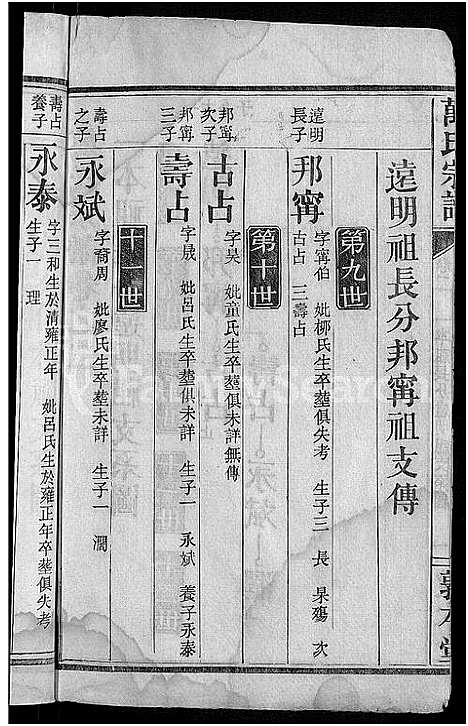 萬氏宗譜
遠明祖長分邦甯祖支傳
第九世
遠明
長子
邦甯
字甯伯 妣柳氏生卒塟俱失考 生子三 長 杲殤 次
古占 三壽占
第十世
邦甯
次子
古占
字昊 妣童氏生卒塟俱未詳無傳
邦甯
三子
壽占
字晟 妣呂氏生卒塟俱未詳 生子一 永斌 養子永泰
十一世
壽占
之子
永斌
字裔周 妣廖氏生卒塟未詳 生子一 瀾
壽占
養子
永泰
字三和生於清雍正年 妣呂氏生於雍正年卒塟俱失考
生子一 理